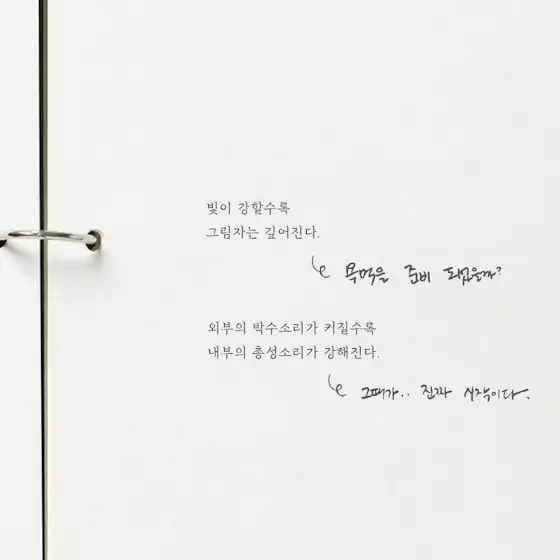 빛이 강할수록
그림자는 깊어진다.
준비 되었을까?
외부의 박수소리가 커질수록
내부의 총성소리가 강해진다.
그때가.. 진짜 시작이다.